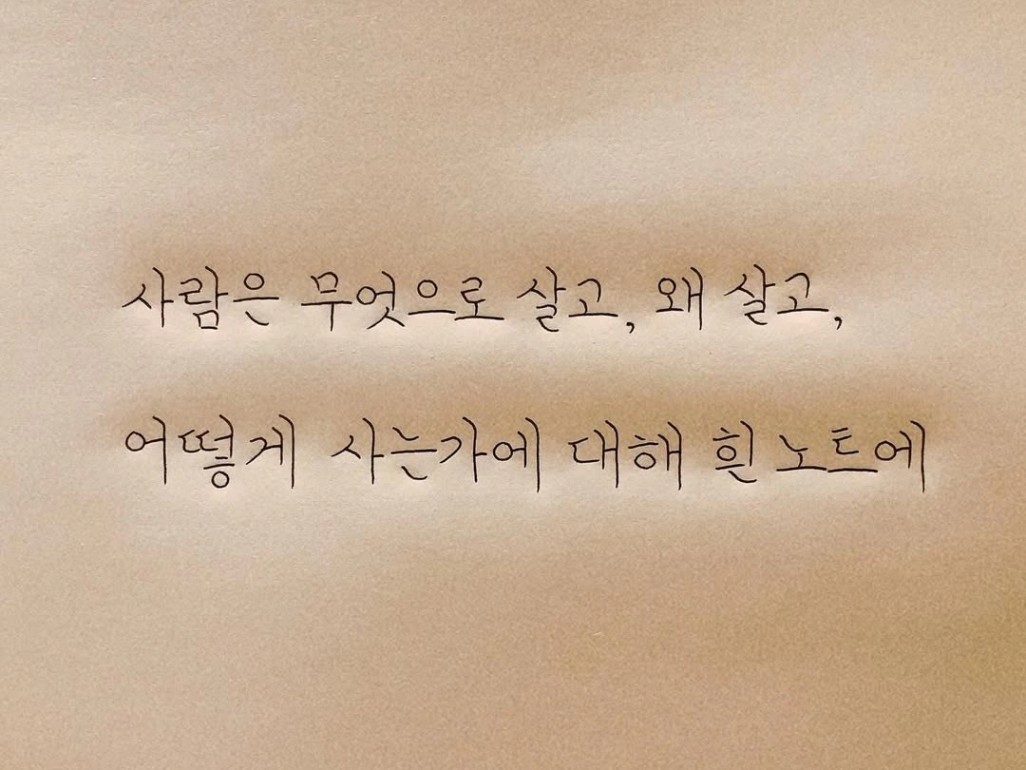 사람은 무엇으로 살고, 왜 살고,
어떻게 사는가에 대해 흰 노트에